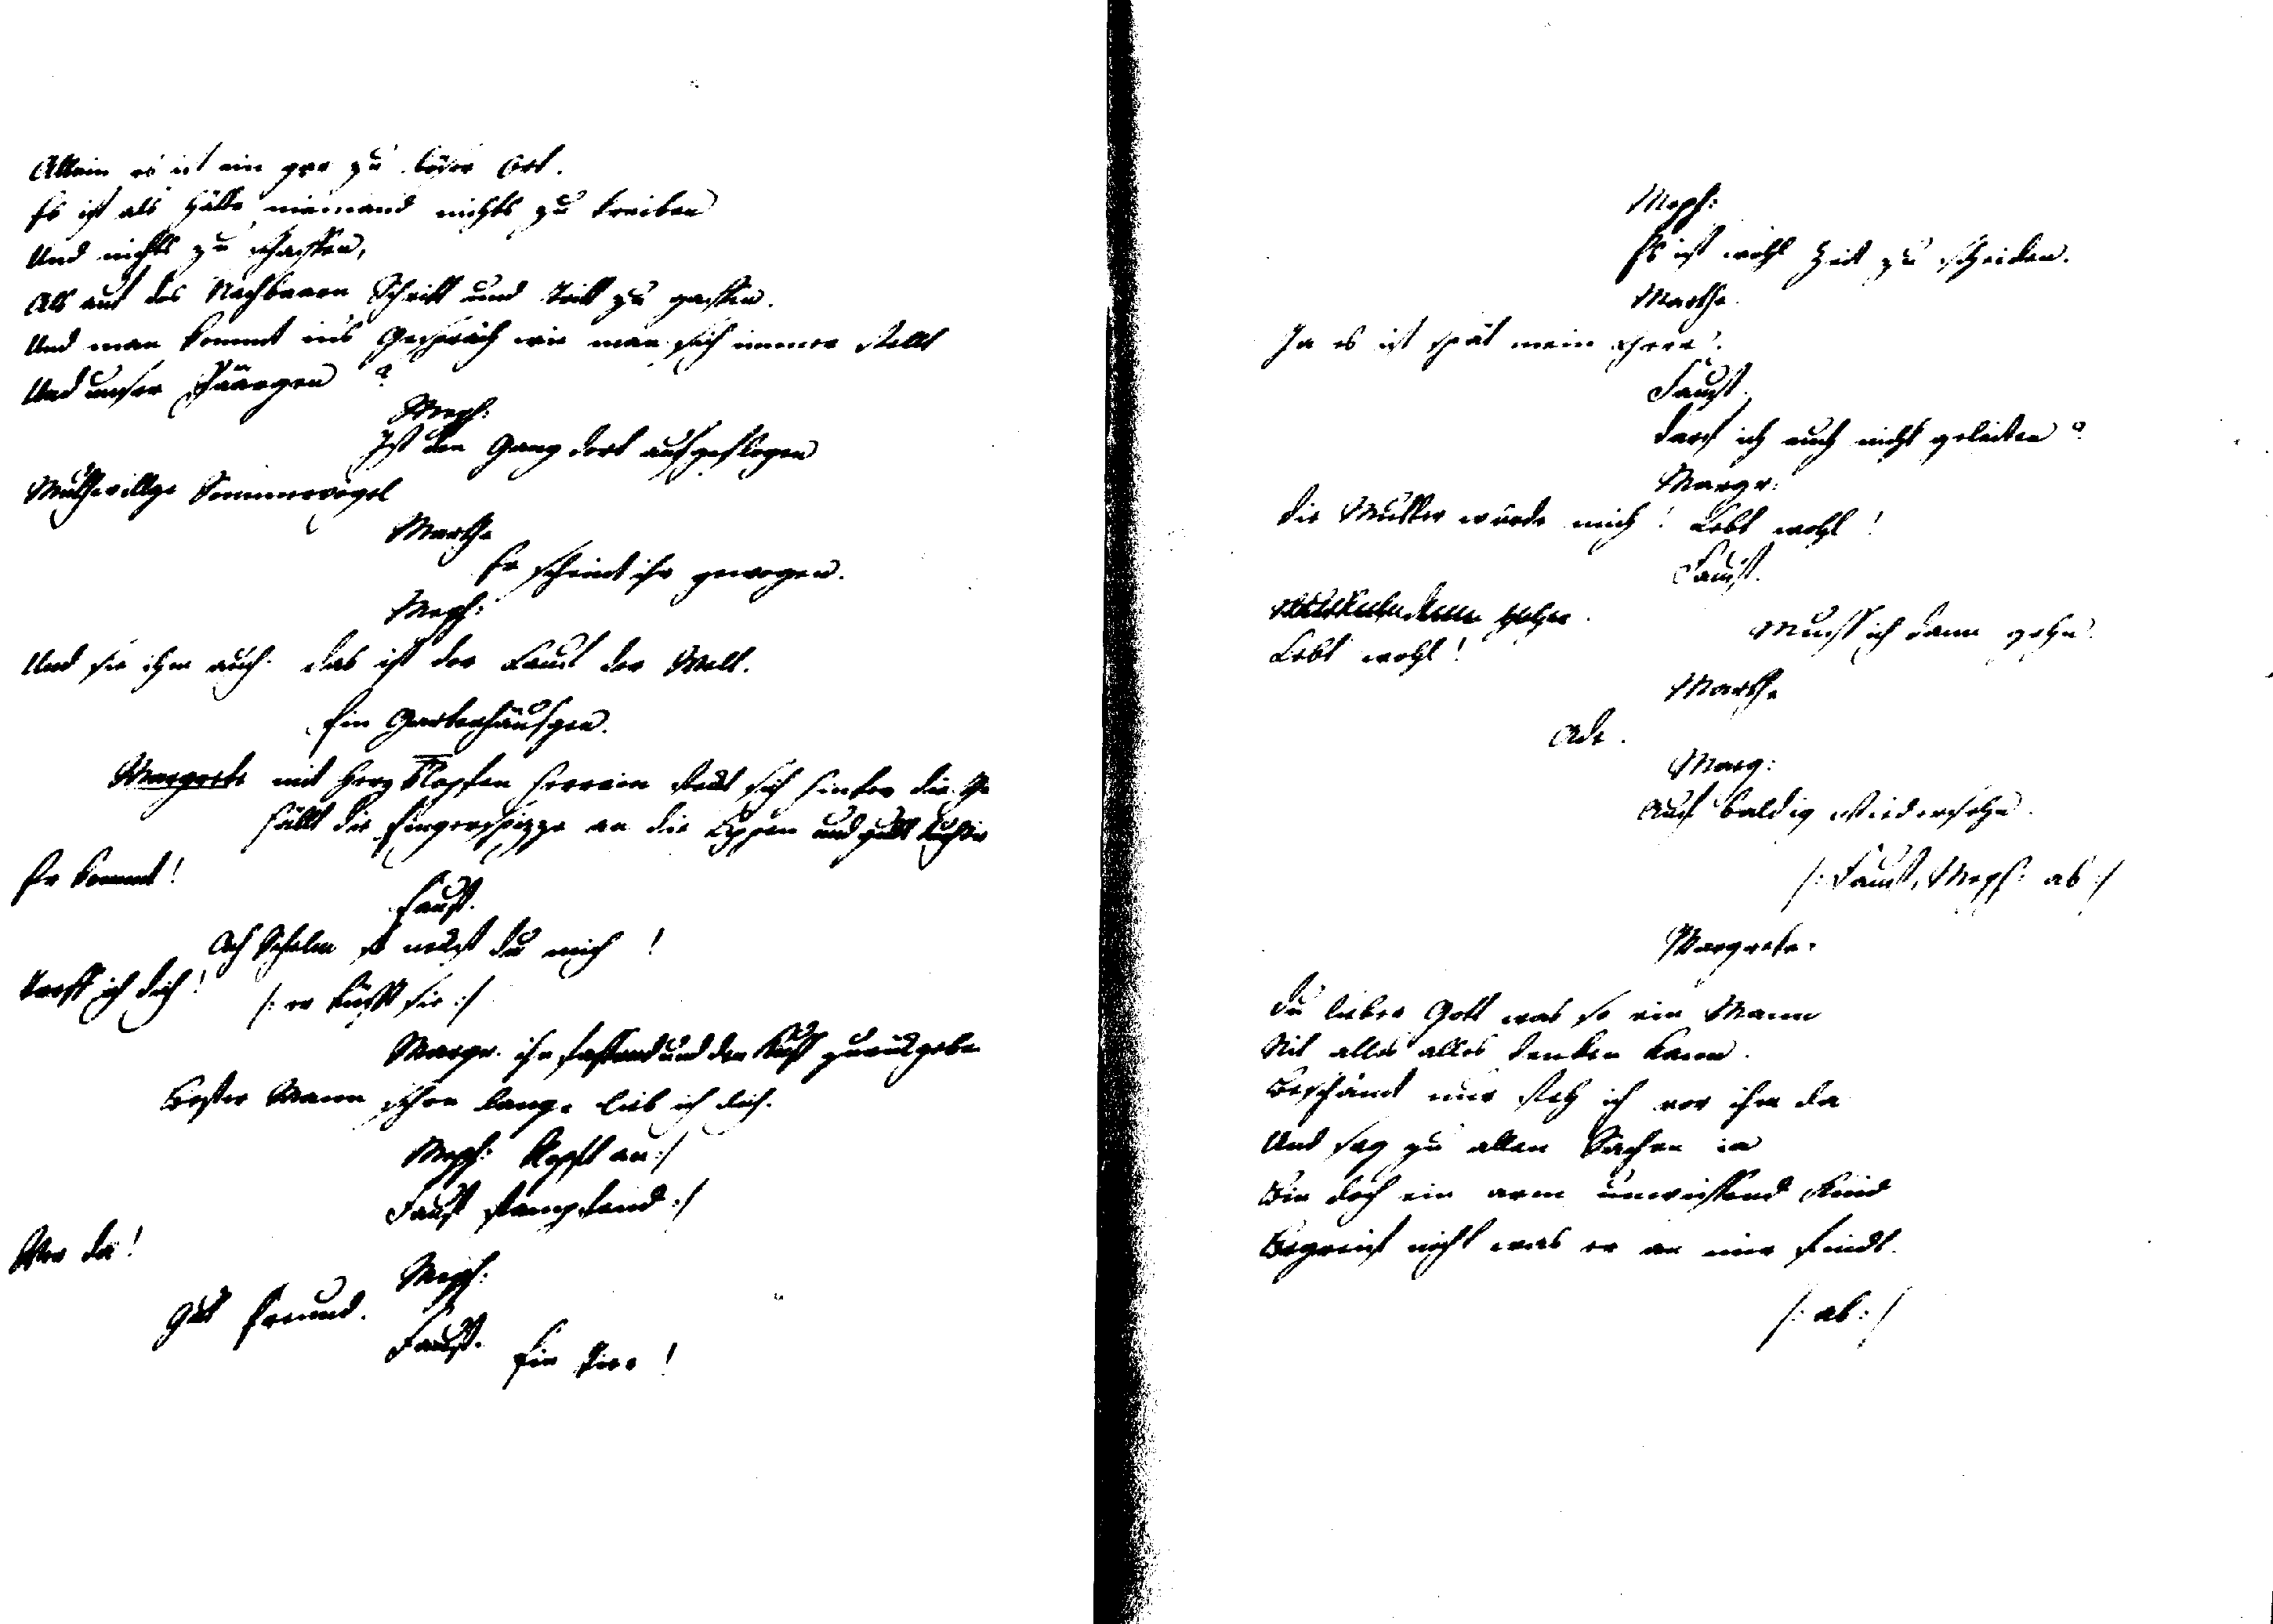 Allein es ist ein gar zu böser Ort.
Es ist als hätte niemand nichts zu treiben
Und nichts zu schaffen,
Als auf des Nachbaarn Schritt und Tritt zu gaffen.
Und man kommt ins Gespräch wie man sich immer stellt
Und unser Päärgen?
Meph:
Ist den Gang dort aufgeflogen
Muthwillge Sommervögel
Marthe
Er scheint ihr gewogen.
Meph:
Und sie ihm auch. das ist der Lauf der Welt.
Ein Gartenhäusgen.
Margrete mit Herz Klopfen herrein steckt sich hinter die
hält die Fingerspizze an die Lippen und guckt durch die
Er kommt!
Faust.
Ach Schelm so neckst du mich!
Treff ich dich!
/: er küsst sie :/
Margr. ihn fassend und den Kuss zurückgebe
Bester Mann schon lange lieb ich dich.
Meph: klopft an :/
Faust stampfend :/
Wer da!
Meph:
Gut Freund.
Faust.
Ein Tier!
Meph:
Es ist wohl Zeit zu scheiden.
Marthe.
Ja es ist spät mein Herr.
Faust.
Darf ich euch nicht geleiten?
Margr:
Die Mutter würde mich! Lebt wohl!
Faust.
Muss ich dann gehn.
Lebt wohl!
Marthe
Ade.
Marg:
Auf baldig Wiedersehn.
/: Faust, Meph: ab :/
Margrete.
Du lieber Gott was so ein Mann
Nit alles alles denken kann.
Beschämt nur steh ich vor ihm da
Und sag zu allen Sachen ia
Bin doch ein arm unwissend Kind
Begreif nicht was er an mir findt.
/: ab :/